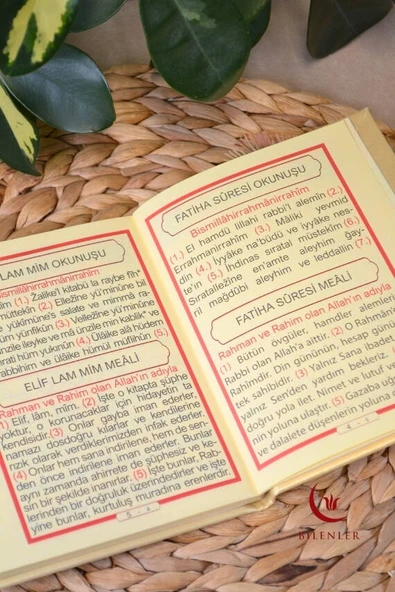 LAM MİM OKUNUŞU
Bismillâhirrahmânirrahîm
(1.) Zâlikel kitâbü la raybe fîh*
müttekîn (2.) Ellezîne yü'minûne bil
yükîmûne's salate ve mimmâ ra-
hüm yünfikûn (3.) Vellezîne yü'minûne
ünzile ileyke ve mâ ünzile min kablik* ve
hüm yûkınûn (4.) Ülâike alâ hüdem
rabbihim ve ülâike hümül müflihûn (5.)
ELİF LAM MİM MEÂLİ
Rahman ve Rahim olan Allah'ın adıyla
(1) Elif, lâm, mîm. (2) İşte o kitapta şüphe
yoktur, o korunacaklar için hidayetin ta
kendisidir. (3) Onlar gayba iman ederler,
namazı dosdoğru kılarlar ve kendilerine
rızık olarak verdiklerimizden infak ederler.
(4) Onlar hem sana indirilene, hem de sen-
den önce indirilene iman ederler. Bunlar
aynı zamanda ahirete de şüphesiz ve ke-
sin bir şekilde inanırlar. (5) İşte bunlar, Rab-
lerinden bir doğruluk üzerindedirler ve işte
yine bunlar, kurtuluş muradına erenlerdir.
- 5 -
FATİHA SÛRESİ OKUNUŞU
Bismillâhirrahmânirrahîm
(1.) El hamdü lillâhi rabbi'l alemin (2.)
Errahmanirrahim (3.) Mâliki yevmid
din (4.) İyyâke na'büdü ve iyyâke nes-
te'in (5.) İhdinas sıratel müstekîm (6.)
Sıratallezîne en'amte aleyhim ğay-
ril mağdûbi aleyhim ve leddallin (7.)
FATİHA SÛRESİ MEÂLİ
Rahman ve Rahim olan Allah'ın adıyla
(1) Bütün övgüler, hamdler alemlerin
Rabbi olan Allah'a aittir. (2) O Rahmân
Rahîmdir. Din gününün, hesap günü
tek sahibidir. (3) Yalnız Sana ibadet
yalnız Sen'den yardım bekleriz.
doğru yola ilet. Nimet ve lutuf
nin yoluna ulaştır. (5) Gazaba uğ
ve dalalete düşenlerin yoluna
- 4 -
BİLENLER